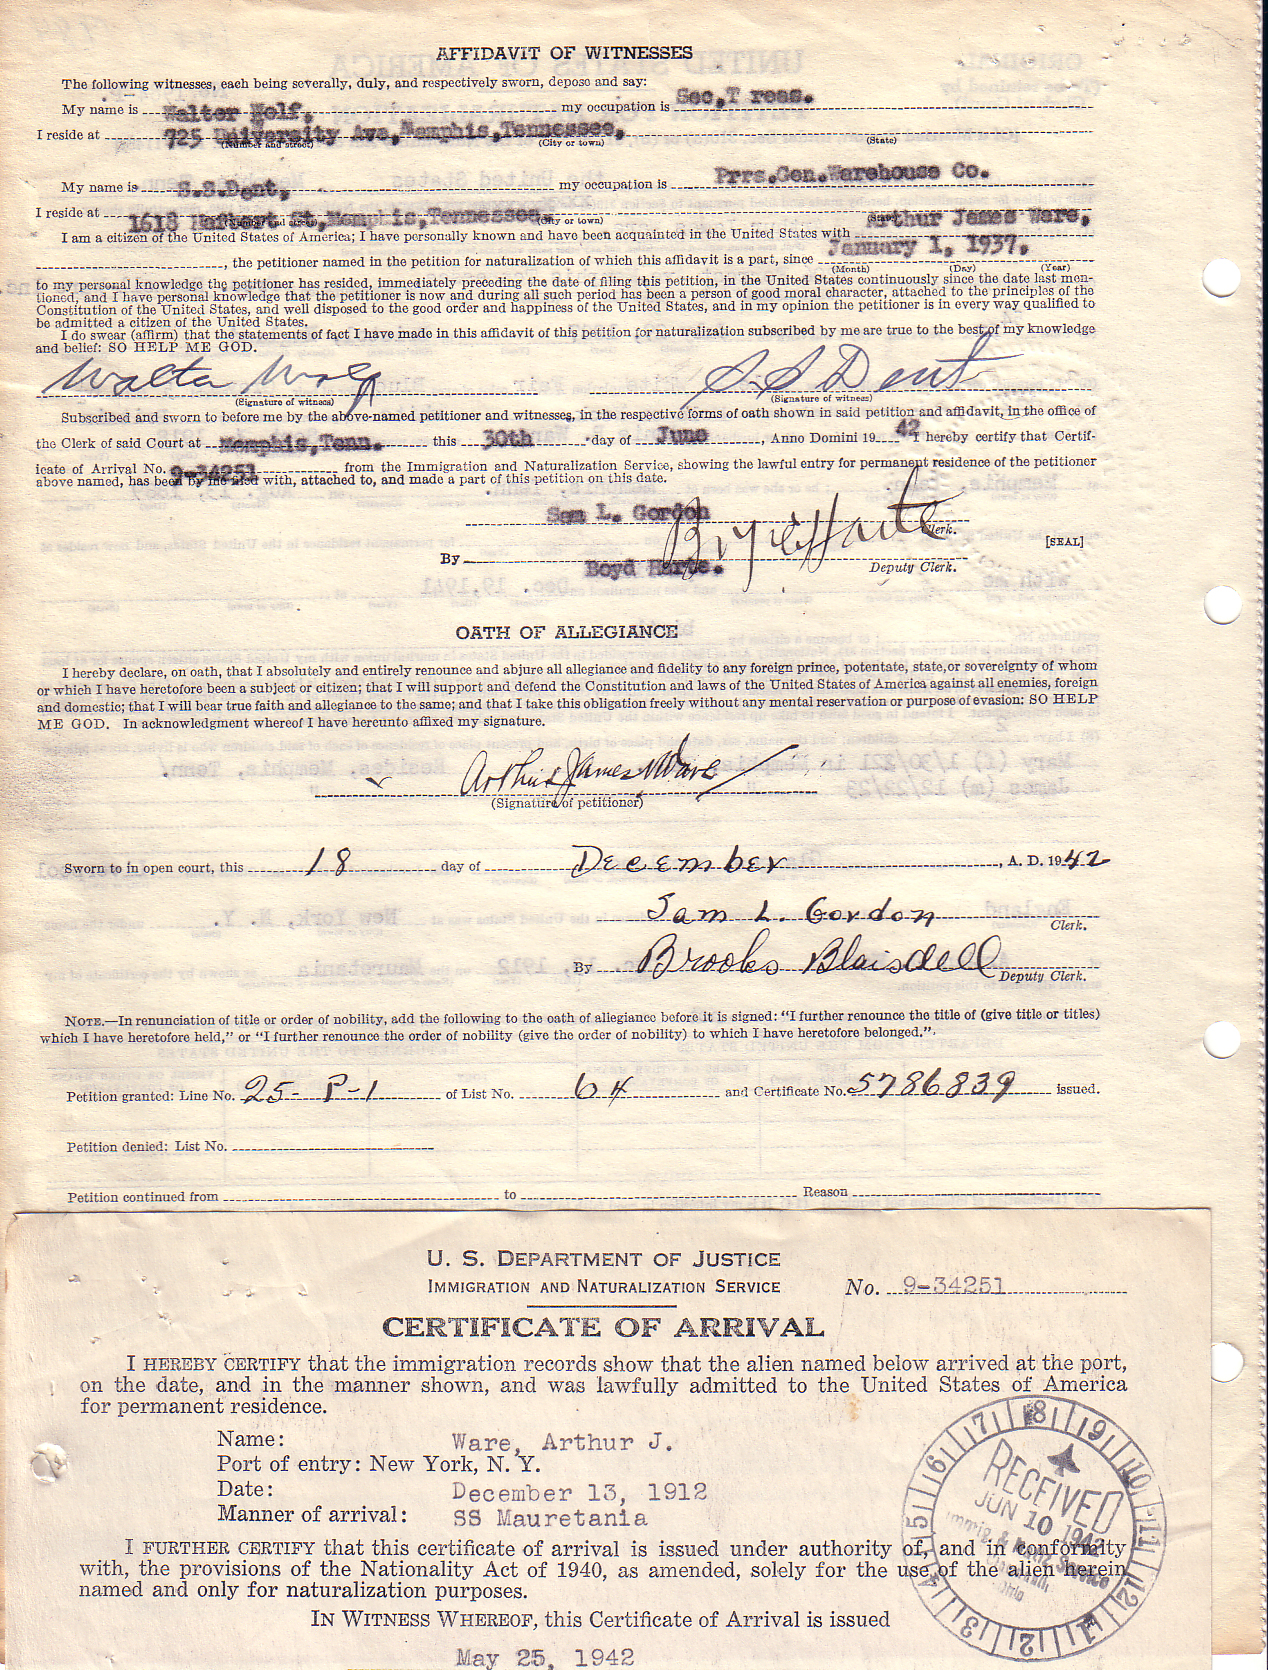 AFFIDAVIT OF WITNESSES
The following witnesses, each being severally, duly, and respectively sworn, depose and say:
My name is Walter Wolf, my occupation is Sec,T reas.
I reside at 725 University Ave,Memphis,Tennessee,
(Number and street) (City or town) (State)
My name is S.S.Dent, my occupation is Prrs.Gen.Warehouse Co.
I reside at 1618 St,Memphis,Tennessee,
(City or town)
I am a citizen of the United States of America; I have personally known and have been acquainted in the United States with Arthur James Ware,
, the petitioner named in the petition for naturalization of which this affidavit is a part, since January 1, 1937,
(Month) (Day) (Year)
to my personal knowledge the petitioner has resided, immediately preceding the date of filing this petition, in the United States continuously since the date last men-
tioned, and I have personal knowledge that the petitioner is now and during all such period has been a person of good moral character, attached to the principles of the
Constitution of the United States, and well disposed to the good order and happiness of the United States, and in my opinion the petitioner is in every way qualified to
be admitted a citizen of the United States.
I do swear (affirm) that the statements of fact I have made in this affidavit of this petition for naturalization subscribed by me are true to the best of my knowledge
and belief: SO HELP ME GOD.
Walter Wolf S S Dent
(Signature of witness) (Signature of witness)
Subscribed and sworn to before me by the above-named petitioner and witnesses, in the respective forms of oath shown in said petition and affidavit, in the office of
the Clerk of said Court at Memphis,Tenn. this 30th day of June , Anno Domini 19 42 I hereby certify that Certif-
icate of Arrival No. 9-34251 from the Immigration and Naturalization Service, showing the lawful entry for permanent residence of the petitioner
above named, has been by me filed with, attached to, and made a part of this petition on this date.
Sam L. Gordon
Clerk.
[SEAL]
By Boyd Harte.
Deputy Clerk.
OATH OF ALLEGIANCE
I hereby declare, on oath, that I absolutely and entirely renounce and abjure all allegiance and fidelity to any foreign prince, potentate, state, or sovereignty of whom
or which I have heretofore been a subject or citizen; that I will support and defend the Constitution and laws of the United States of America against all enemies, foreign
and domestic; that I will bear true faith and allegiance to the same; and that I take this obligation freely without any mental reservation or purpose of evasion: SO HELP
ME GOD. In acknowledgment whereof I have hereunto affixed my signature.
Arthur James Ware
(Signature of petitioner)
Sworn to in open court, this 18 day of December , A. D. 1942
Sam L. Gordon
Clerk.
By Brooks Blaisdell
Deputy Clerk.
NOTE.—In renunciation of title or order of nobility, add the following to the oath of allegiance before it is signed: "I further renounce the title of (give title or titles)
which I have heretofore held," or "I further renounce the order of nobility (give the order of nobility) to which I have heretofore belonged."
Petition granted: Line No. 25- P-1 of List No. 64 and Certificate No. 5786839 issued.
Petition denied: List No.
Petition continued from to Reason
U. S. DEPARTMENT OF JUSTICE
IMMIGRATION AND NATURALIZATION SERVICE
No. 9-34251
CERTIFICATE OF ARRIVAL
I HEREBY CERTIFY that the immigration records show that the alien named below arrived at the port,
on the date, and in the manner shown, and was lawfully admitted to the United States of America
for permanent residence.
Name: Ware, Arthur J.
Port of entry: New York, N. Y.
Date: December 13, 1912
Manner of arrival: SS Mauretania
I FURTHER CERTIFY that this certificate of arrival is issued under authority of, and in conformity
with, the provisions of the Nationality Act of 1940, as amended, solely for the use of the alien herein
named and only for naturalization purposes.
IN WITNESS WHEREOF, this Certificate of Arrival is issued
May 25, 1942
RECEIVED
JUN 10 1942
Immig & Natz Service
Ohio
1 2 3 4 5 6 7 8 9 10 11 12